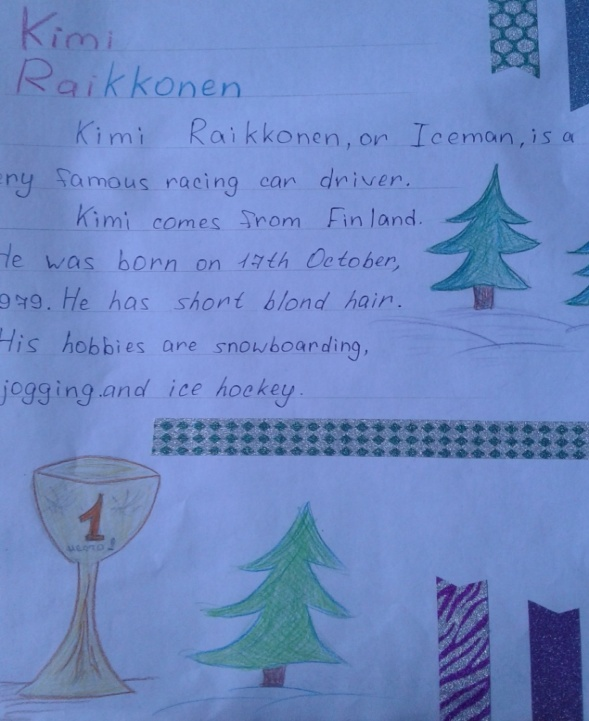 Kimi
Raikkonen
Kimi Raikkonen, or Iceman, is a
ery famous racing car driver.
Kimi comes from Finland.
He was born on 17th October,
979. He has short blond hair.
His hobbies are snowboarding,
jogging.and ice hockey.
1